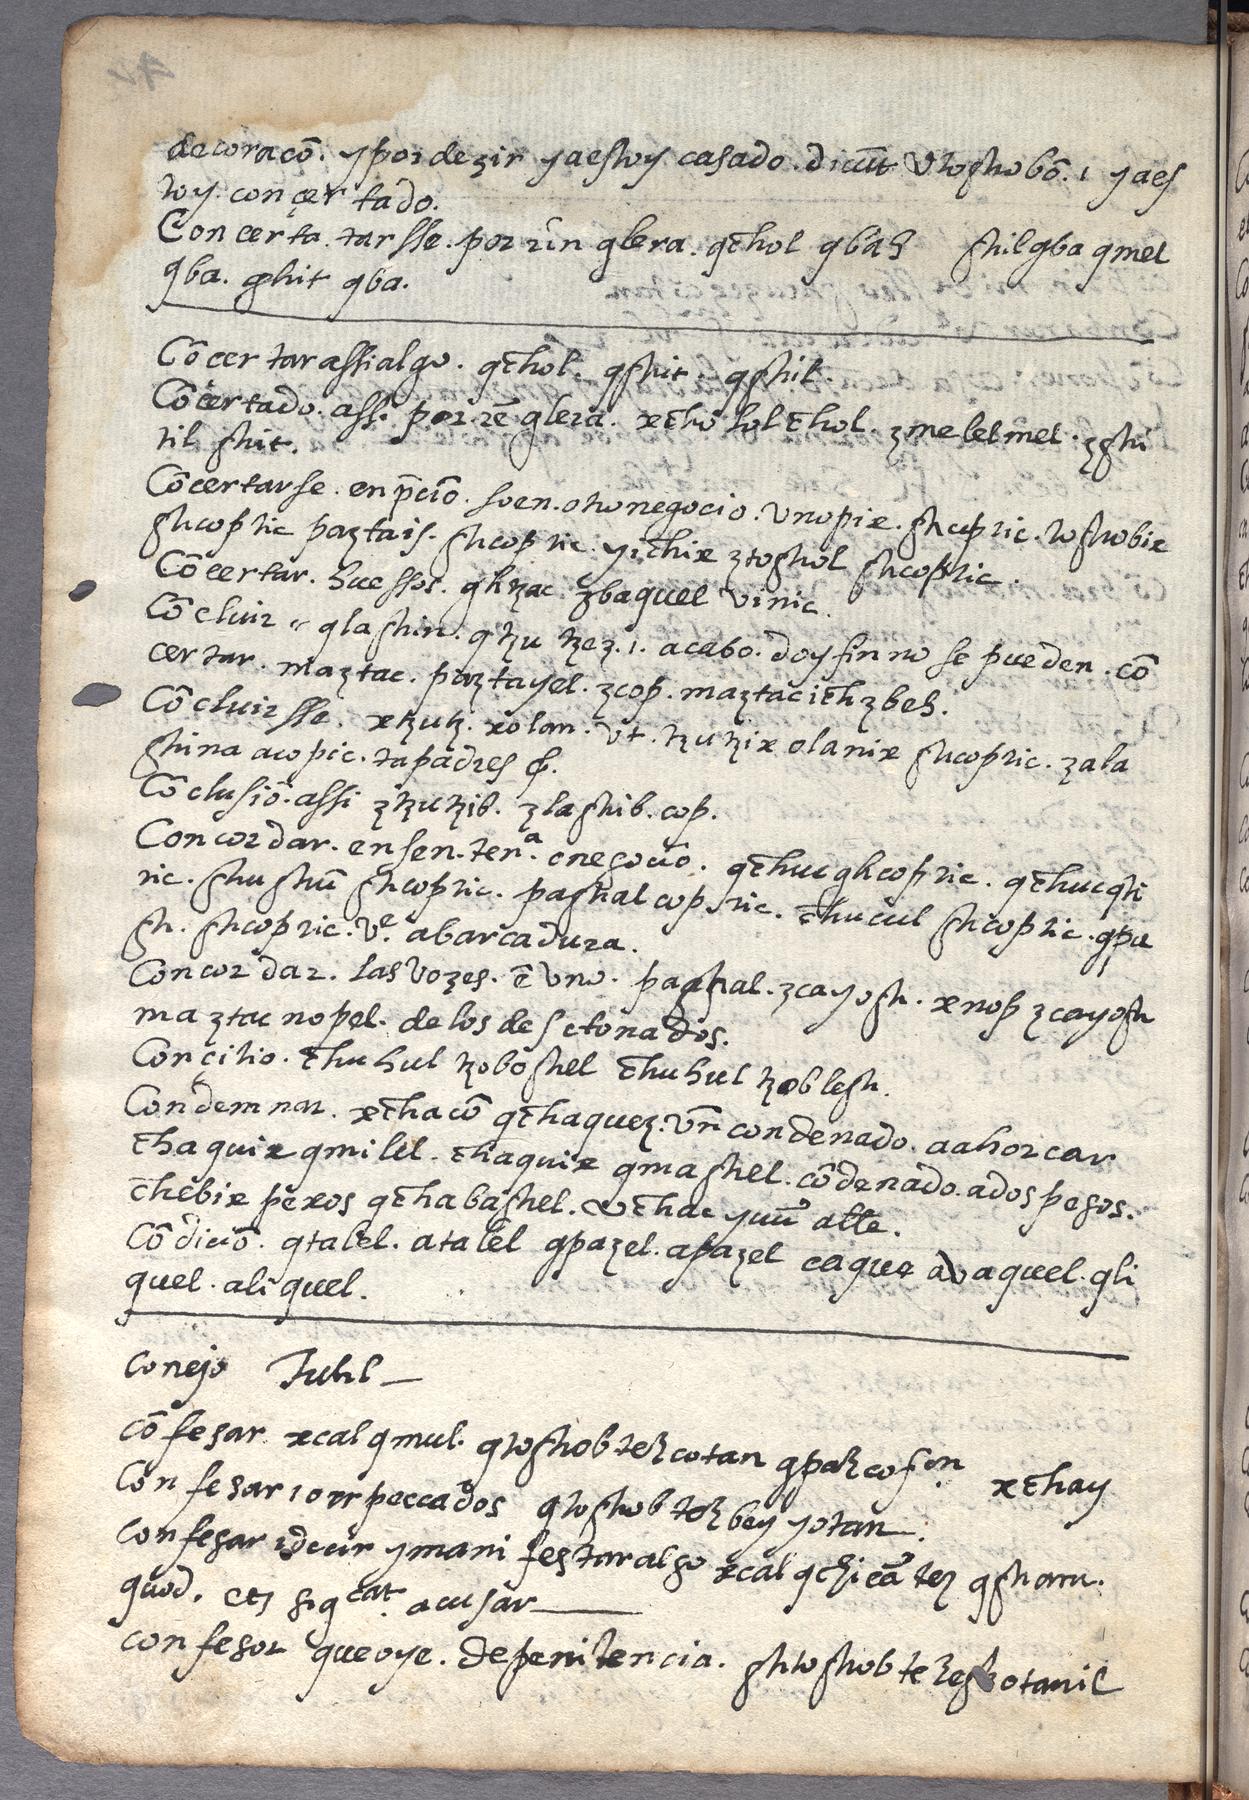 decoracō. y por dezir yaestoy casado. dicūt vtoghobō. i yaes
toy conçertado.
Concerta tarsse. por rīn glera. qchol qbah ghilqba qmel
qba. ghit qba.
Cōcertar assi algo. qchol. qghit. qghil.
Cōcertado. assi. por rē glera. xcho lolchol. zmelelmel. zghi
til ghit.
Cōcertarse. en pcīo. so en. otro negocio. vnopix. ghcoptic. toghobix
ghcoptic paztais. ghcoptic. yichix ztoghol ghcoptic.
Cōcertar. huessos. qhtzac. zbaquel vinic.
Cōcluir qlaghin. qtzutzez. i. acabo. doy fin no se pueden. cō
certar. maztac. paztayel. zcop. maztac ichzbeh.
Cōcluirsse. xtzutz. xolan. vt. tzutzix olanix ghcoptic. zala
ghina acopic. tapadres
Cōclusiō. assi ztzutzib. zlaghib. cop.
Concordar. en senten.ª onegocio. qchucqhcoptic. qchucqti
tic. ghughū ghcoptic. paghal coptic. chucul ghcoptic. qpa
gh. ghcoptic. vᵉ. abarcadura.
Concordar. las vozes. ē vno. paghal. zcayogh. xnop zcayogh
maztac nopel. de los desetonados.
Concilio. chuhul tzoboghel chuhul tzoblegh.
Condemnar. xchacō qchaquez. vn condenado. a ahorcar
chaquix qmilel. chaquix qmaghel. cōdenado. ados pesos.
chebix pexos qchabaghel. vchac yuū alle.
Cōdiciō. qtalel. atalel qpazel. apazel caque avaquel. qli
quel. aliquel.
conejo Tuhl
cōfesar xcal qmul. qtoghobtehcotan qpahcofon xchay
Confesar peccados qtoghob tehbey yotan
confesar ymanifestar algo xcal
quod. sigcat acusar
confesor queoye. depenitencia.